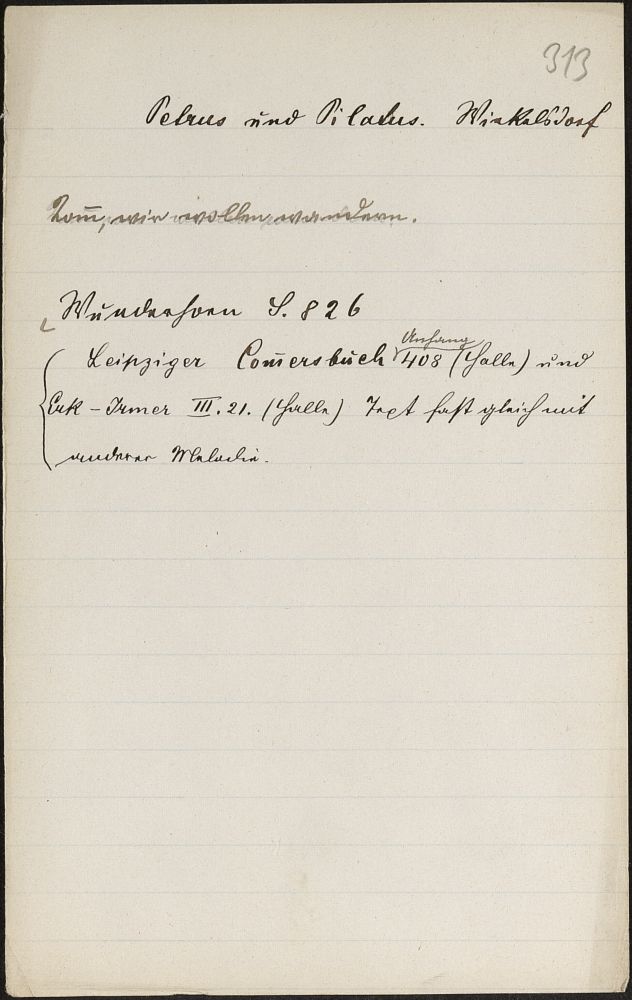 313
Petrus und Pilatus. Winkelsdorf
Kom̅, wir wollen wandern.
Wunderhorn S. 826
Anhang
Leipziger Com̅ersbuch 408 (Halle) und
Erk - Irmer III. 21. (Halle) Text fast gleich mit
anderer Melodie.